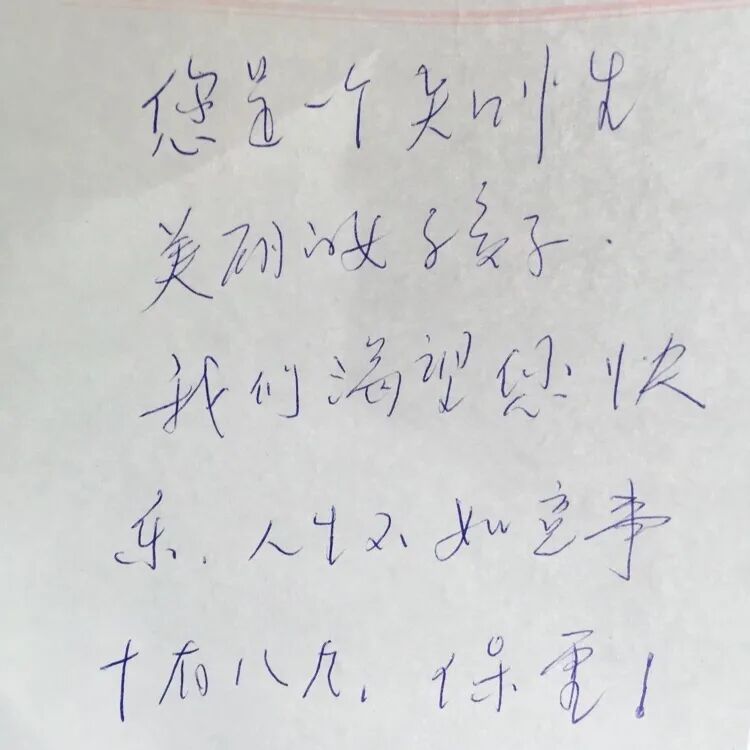 您是一个知性
美丽的女子孩子.
我们渴望您快
乐.人生不如意事
十有八九,保重!